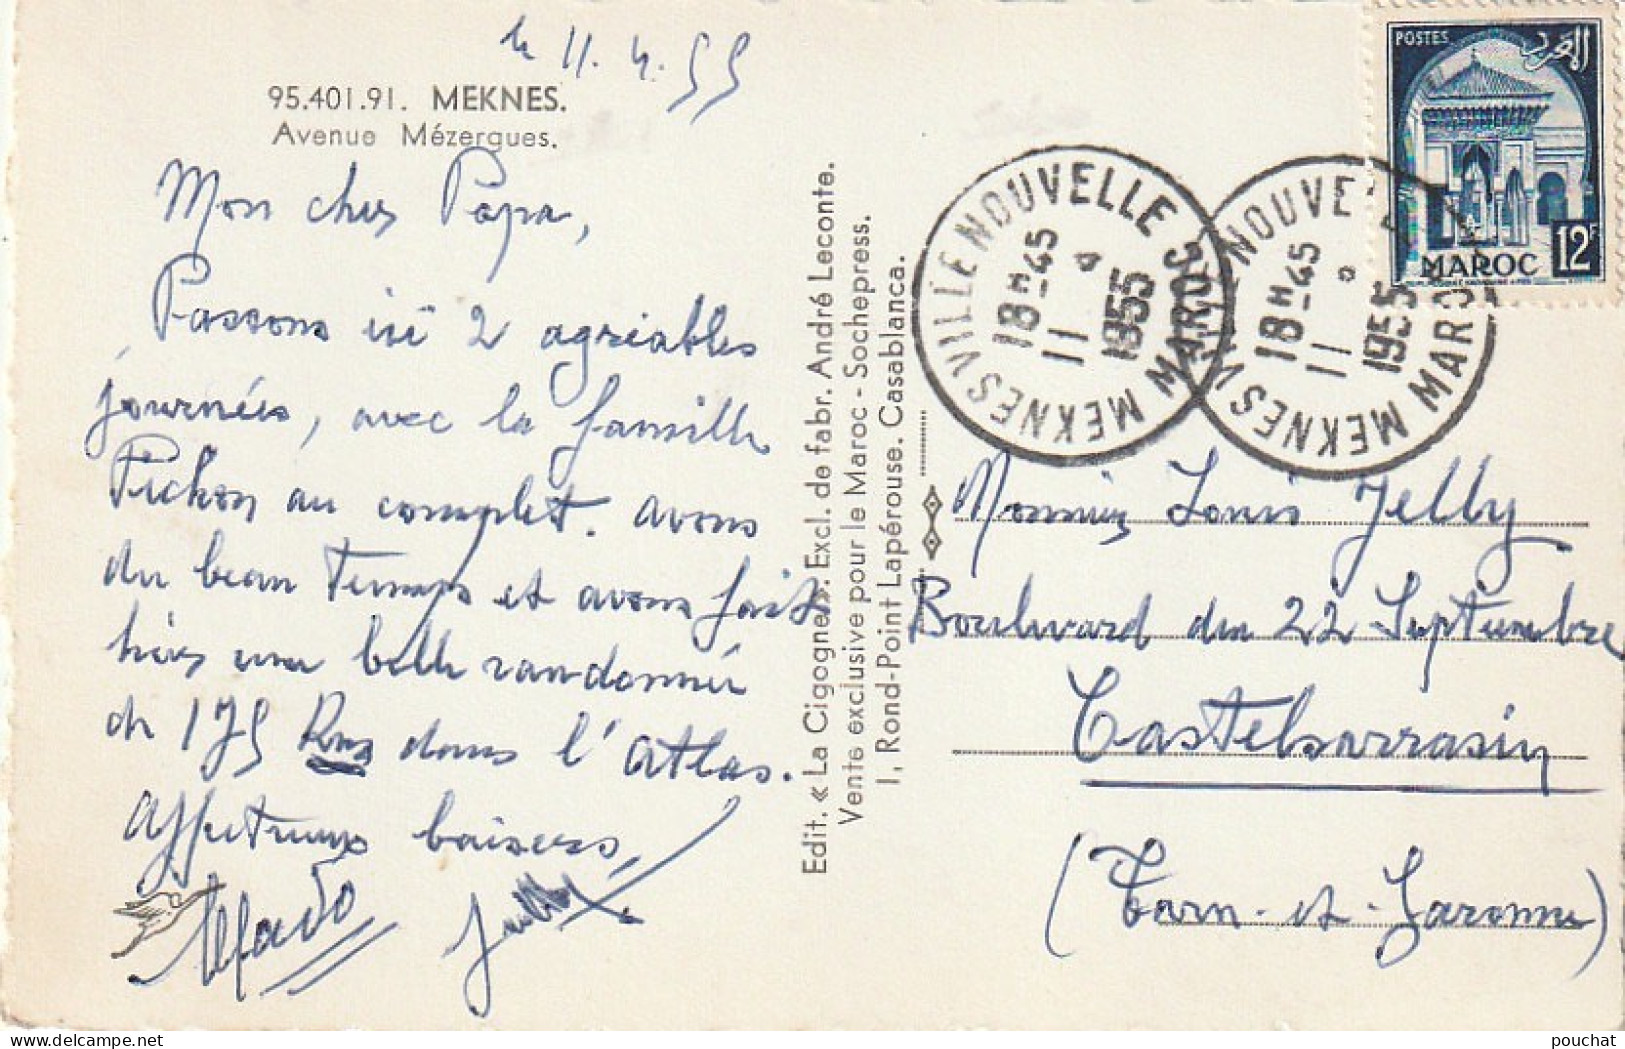 le 11.4.55
95.401.91. MEKNES.
Avenue Mézergues.
Mon cher Papa,
Passons ici 2 agréables
journées, avec la famille
Pichon au complet. avons
du beau temps et avons fait
hier une belle randonnée
de 175 Kms dans l'Atlas.
Affectueux baisers,
Edit. « La Cigogne ». Excl. de fabr. André Leconte.
Vente exclusive pour le Maroc - Sochepress.
1, Rond-Point Lapérouse. Casablanca.
POSTES
المغرب
12F
MAROC
MEKNES VILLE NOUVELLE MAROC
18H-45
11 4
1955
MEKNES VILLE NOUVELLE MAROC
18H-45
11
1955
Monsieur Louis Jelly
Boulevard du 22 Septembre
Castelsarrasin
(Tarn-et-Garonne)
pouchat